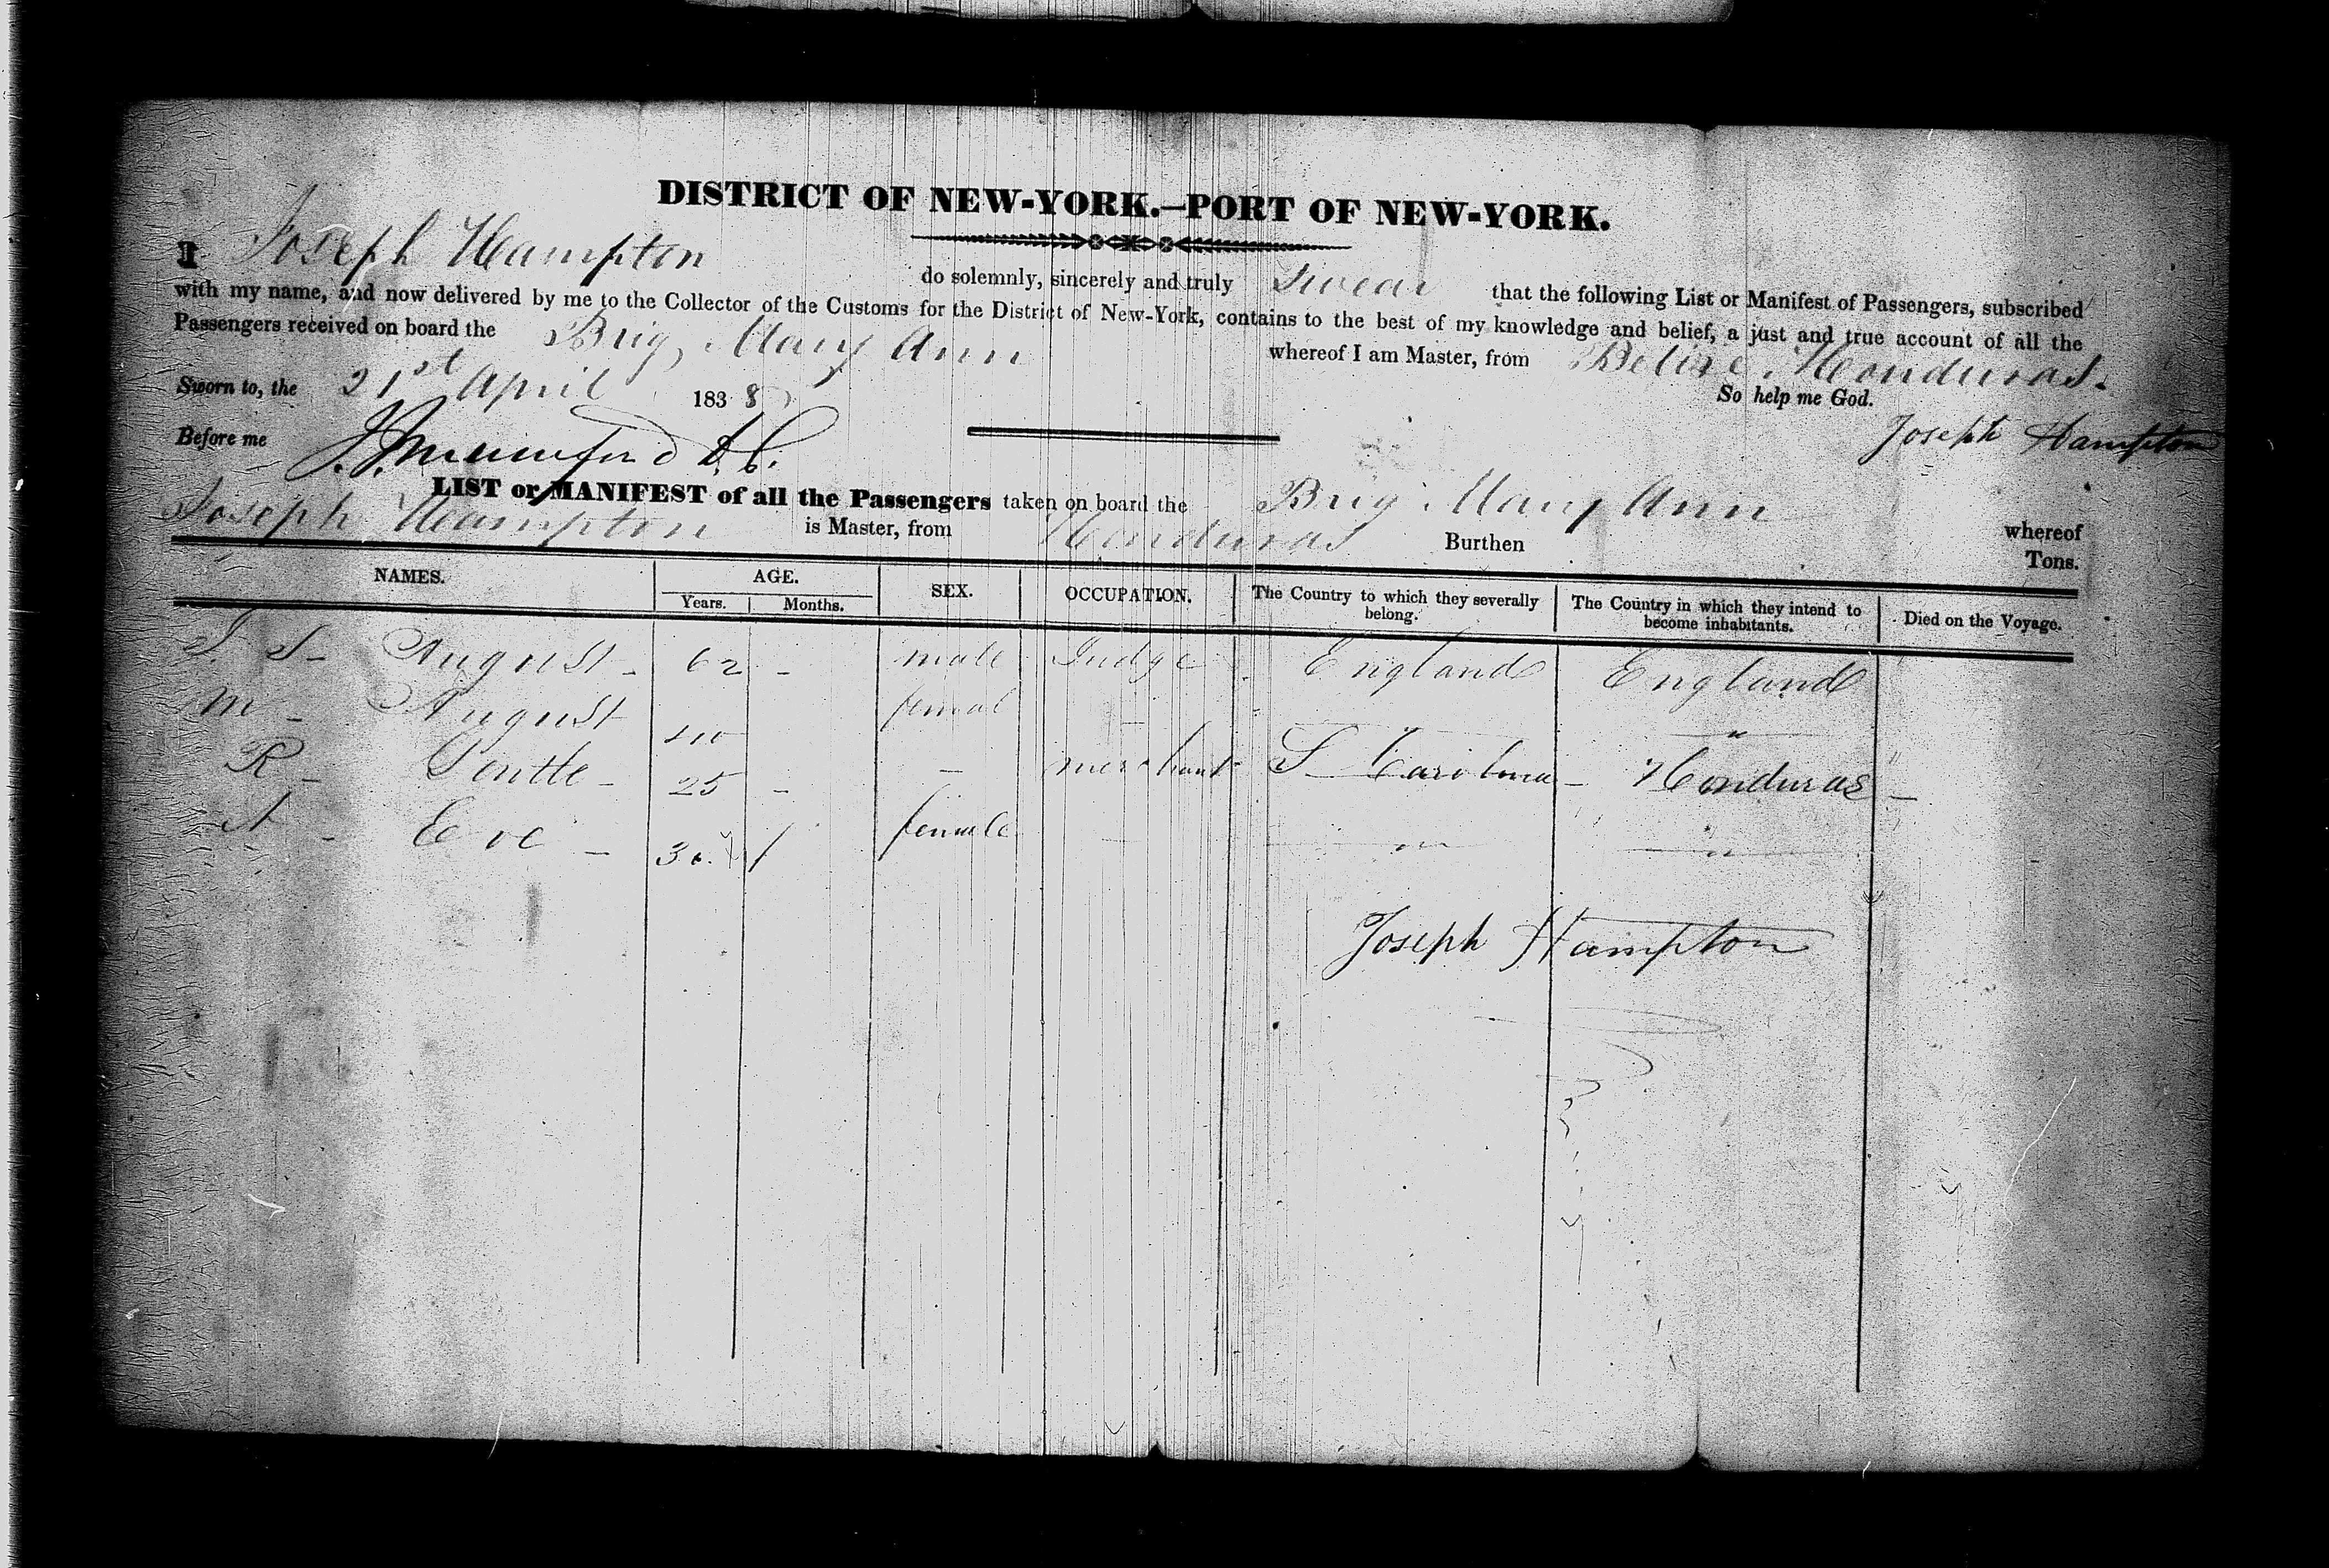 DISTRICT OF NEW-YORK.—PORT OF NEW-YORK.
I Joseph Hampton do solemnly, sincerely and truly swear that the following List or Manifest of Passengers, subscribed
with my name, and now delivered by me to the Collector of the Customs for the District of New-York, contains to the best of my knowledge and belief, a just and true account of all the
Passengers received on board the Brig Mary Ann whereof I am Master, from Belize Honduras.
Sworn to, the 21st April 1838 So help me God.
Before me Joseph Hampton
LIST or MANIFEST of all the Passengers taken on board the Brig Mary Ann whereof
Joseph Hampton is Master, from Honduras Burthen Tons.
NAMES. AGE. SEX. OCCUPATION. The Country to which they severally belong. The Country in which they intend to become inhabitants. Died on the Voyage.
Years. Months.
S - August - 62 - male Judge England England
M - August femal - "
R - 25 - - merchant S Carolina - Honduras -
Eve - female - " "
Joseph Hampton